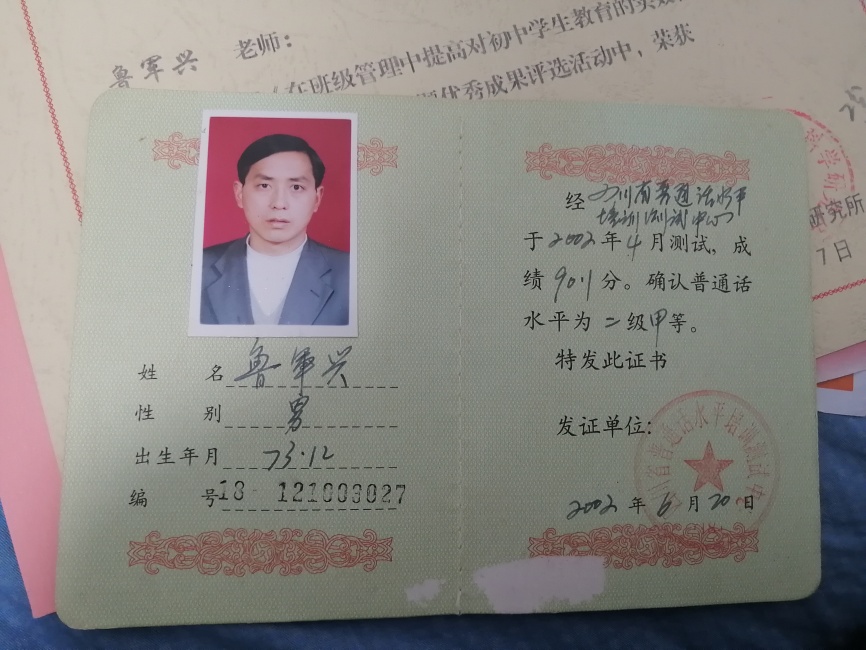 鲁军兴 老师：
在班级管理中提高对初中学生教育的实效
优秀成果评选活动中，荣获
研究所
7日
姓名 鲁军兴
性别 男
出生年月 73.12
编号 18-121003027
经 四川省普通话水平
培训测试中心
于2002年4月测试，成
绩90.1分。确认普通话
水平为二级甲等。
特发此证书
发证单位：
川省普通话水平培训测试中心
2002年6月20日